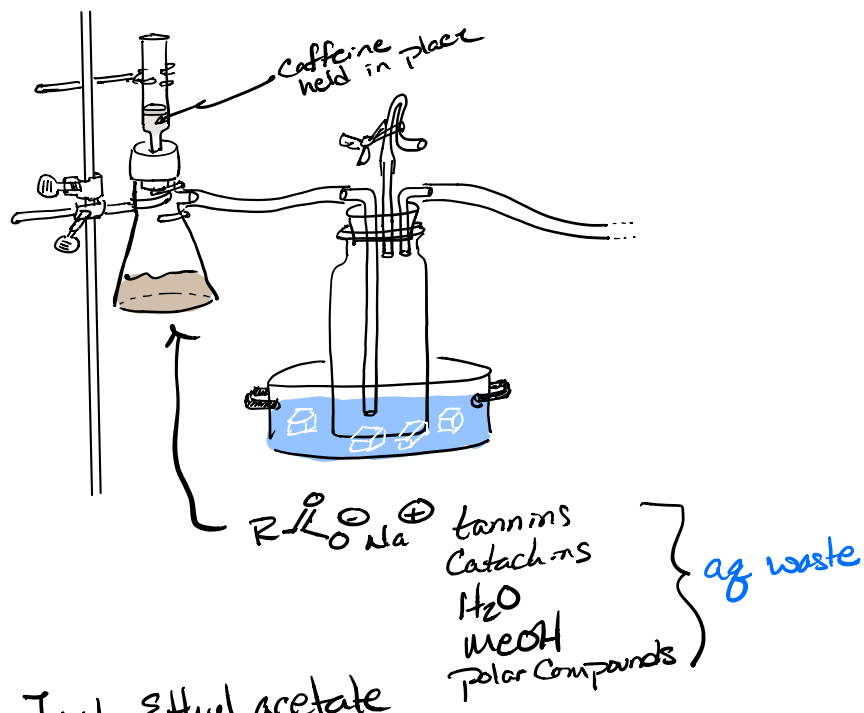 Caffeine
held in place
R O O ⊖ Na ⊕
tannins
Catachins
H₂O
MeOH
polar Compounds
aq waste
Ethyl acetate